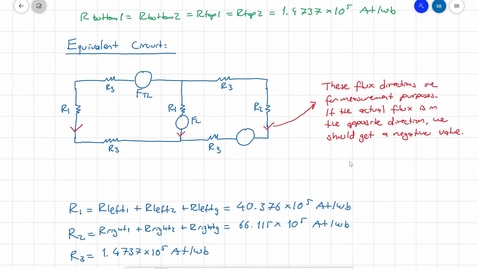 Rbottom1 = Rbottom2 = Rtop1 = Rtop2 = 1.4737 × 10⁵ At/wb
Equivalent Circuit:
R3
FTL
R3
R1
R1
FL
R2
R3
R3
These flux directions are
for measurement purposes.
If the actual flux is in
the opposite direction, we
should get a negative value.
R1 = Rleft1 + Rleft2 + Rleftg = 40.376 × 10⁵ At/wb
R2 = Rright1 + Rright2 + Rrightg = 66.115 × 10⁵ At/wb
R3 = 1.4737 × 10⁵ At/wb